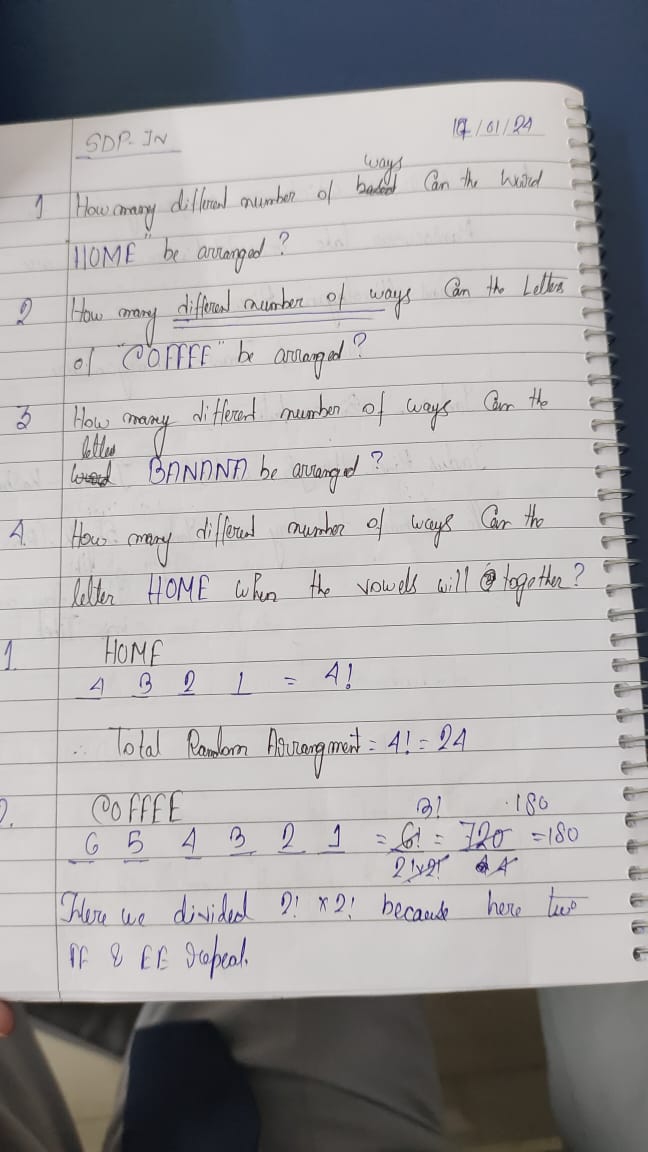 SDP-IN 17/01/24
ways
1 How many different number of Can the word
HOME be arranged?
2 How many different number of ways Can the Letters
of "COFFEE" be arranged?
3 How many different number of ways Can the
letter
BANANA be arranged?
4. How many different number of ways Can the
letter HOME when the vowels will together?
1. HOME
4 3 2 1 = 4!
∴ Total Random Arrangment = 4! = 24
2. COFFEE 3! 180
6 5 4 3 2 1 = 6! = 720 = 180
2!x2! 4
Here we divided 2! x 2! because here two
FF & EE repeat.